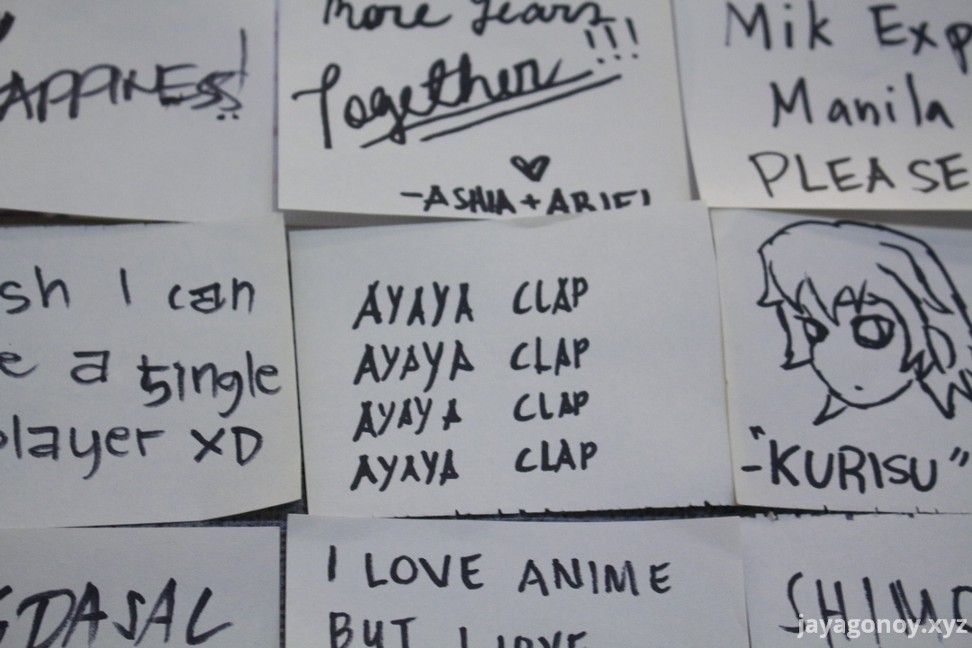 APPINESS!
more years
Together!!!
-ASHIA + ARIEL
Mik Exp
Manila
PLEASE
sh I can
e a single
player XD
AYAYA CLAP
AYAYA CLAP
AYAYA CLAP
AYAYA CLAP
-"KURISU"
GDASAL
I LOVE ANIME
BUT I LOVE
jayagonoy.xyz